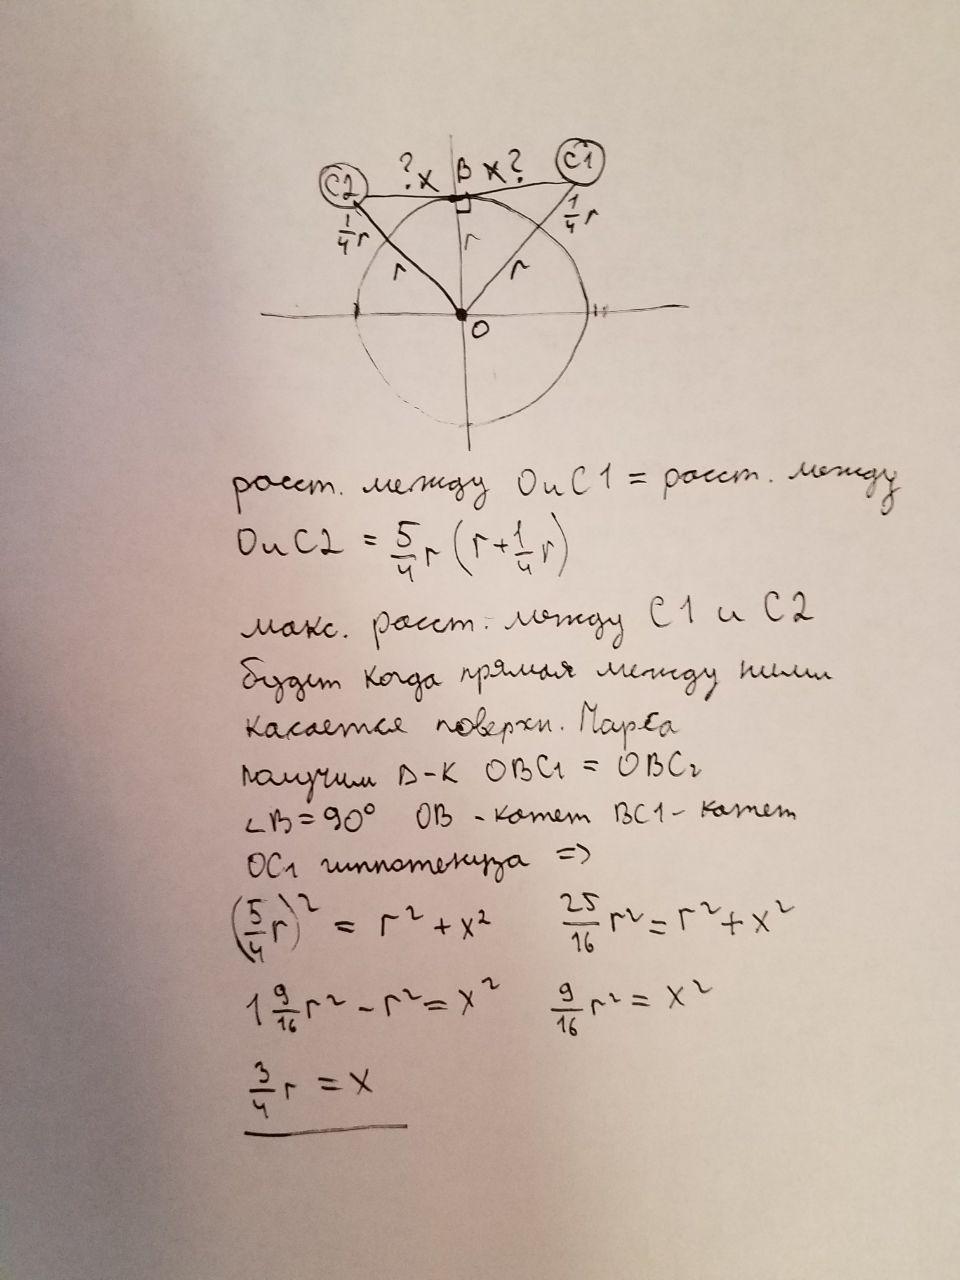 C2 ? x B x ? C1
1/4 r r r r 1/4 r
O
расст. между O и C1 = расст. между
O и C2 = 5/4 r (r + 1/4 r)
макс. расст. между C1 и C2
будет когда прямая между ними
касается поверхн. Марса
получим ∆-к OBC1 = OBC2
∠B = 90° OB - катет BC1 - катет
OC1 гиппотенуза =>
(5/4 r)² = r² + x² 25/16 r² = r² + x²
1 9/16 r² - r² = x² 9/16 r² = x²
3/4 r = x